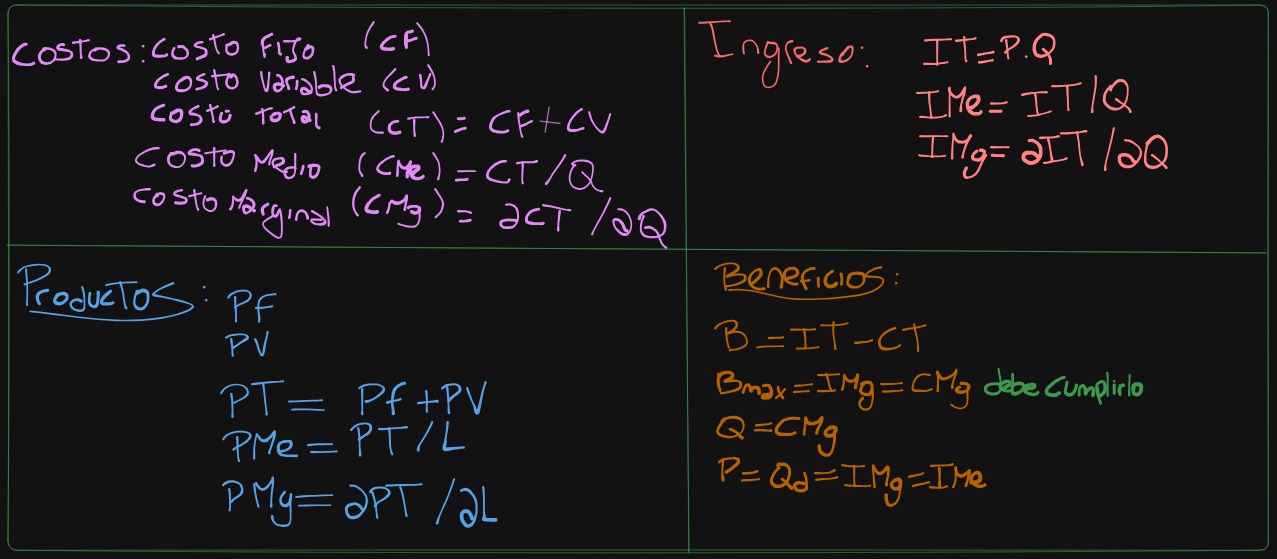 Costos: Costo Fijo (CF)
Costo Variable (CV)
Costo Total (CT) = CF+CV
Costo Medio (CMe) = CT/Q
Costo Marginal (CMg) = ∂CT/∂Q
Ingreso: IT=P.Q
IMe= IT/Q
IMg= ∂IT/∂Q
Productos: Pf
PV
PT = Pf+PV
PMe = PT/L
PMg= ∂PT/∂L
Beneficios:
B=IT-CT
Bmax=IMg=CMg debe cumplirlo
Q=CMg
P=Qd=IMg=IMe